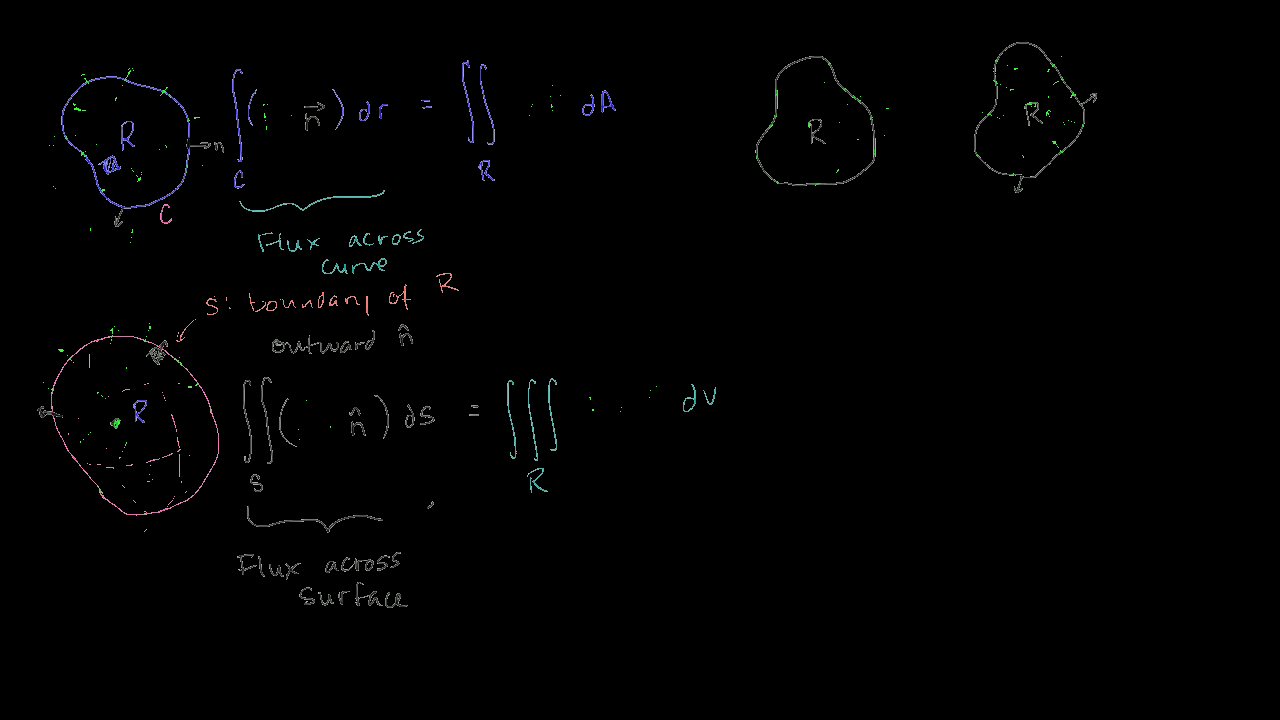 R
n
C
∫_C ( · n⃗ ) dr = ∬_R dA
Flux across
curve
R
R
S: boundary of R
outward n̂
R
∬_S ( · n̂ ) dS = ∭_R dV
Flux across
surface